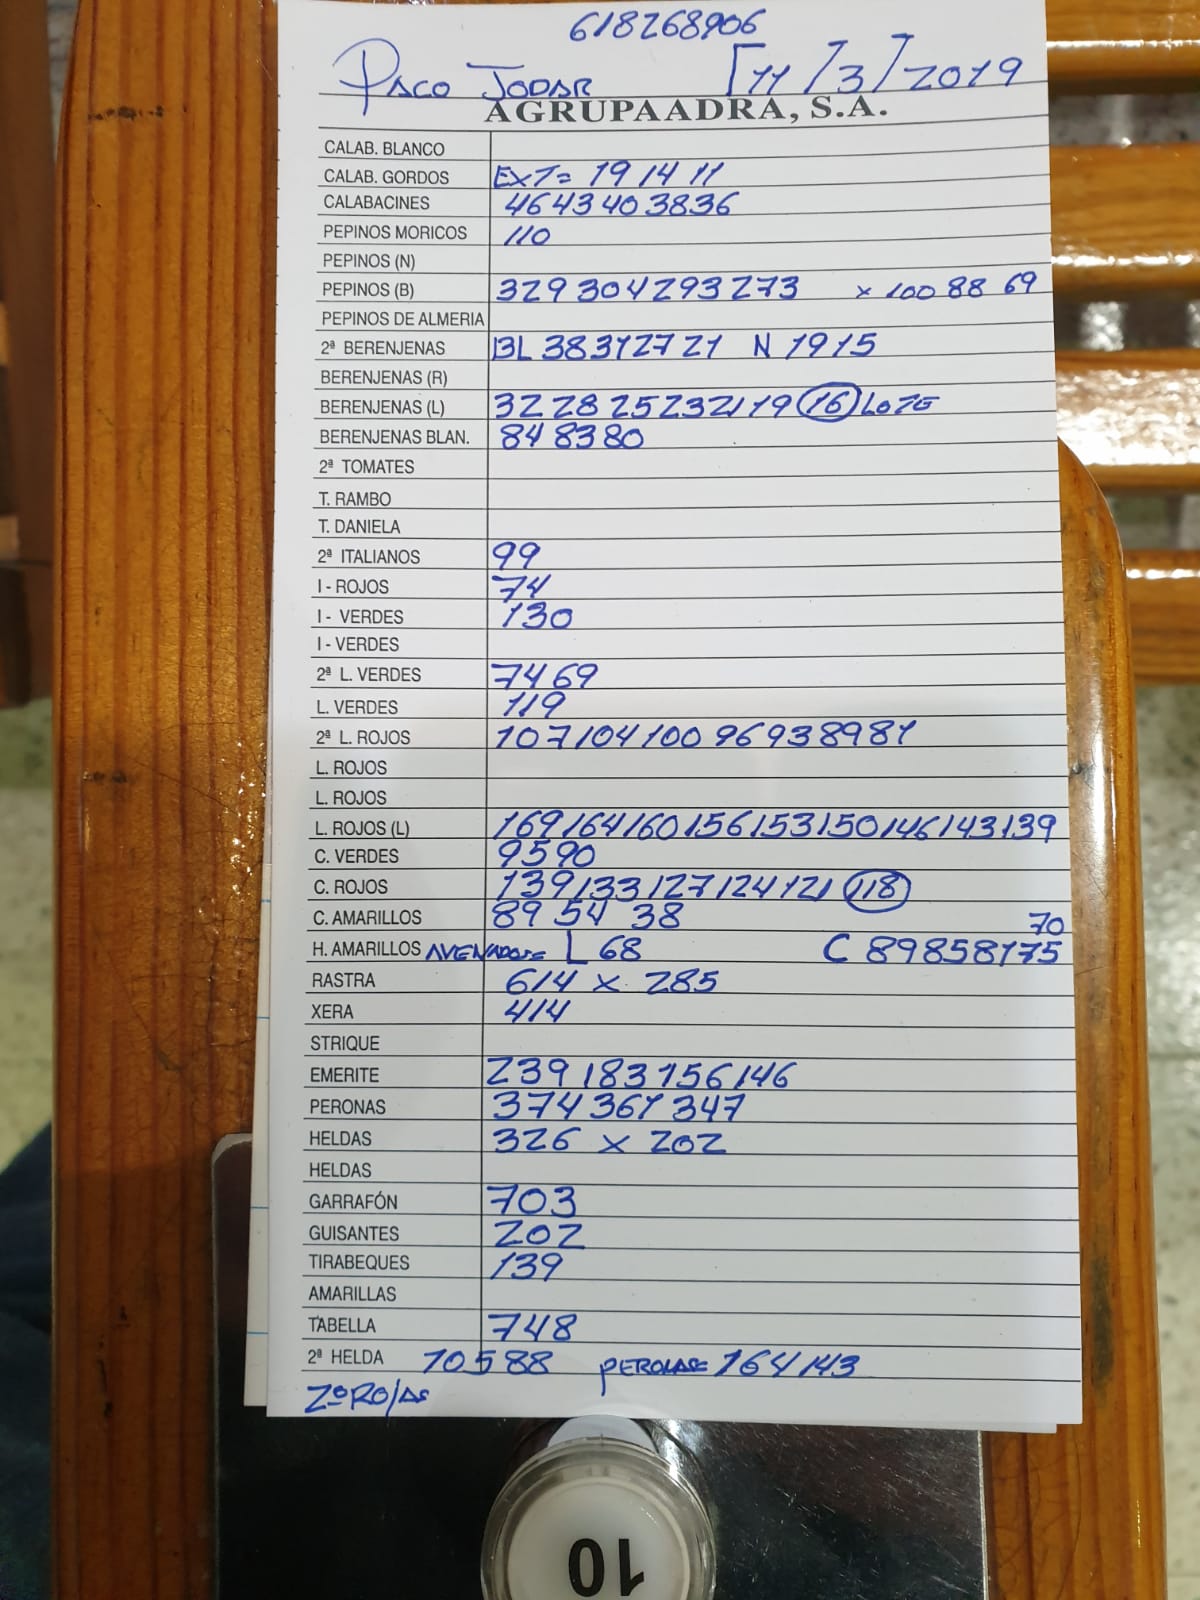 618268906
PACO JODAR 11/3/2019
AGRUPAADRA, S.A.
CALAB. BLANCO
CALAB. GORDOS EXT= 19 14 11
CALABACINES 46 43 40 38 36
PEPINOS MORICOS 110
PEPINOS (N)
PEPINOS (B) 329 304 293 273 x 100 88 69
PEPINOS DE ALMERIA
2ª BERENJENAS BL 38 31 27 21 N 19 15
BERENJENAS (R)
BERENJENAS (L) 32 28 25 23 21 19 16 LOTE
BERENJENAS BLAN. 84 83 80
2ª TOMATES
T. RAMBO
T. DANIELA
2ª ITALIANOS 99
I - ROJOS 74
I - VERDES 130
I - VERDES
2ª L. VERDES 74 69
L. VERDES 119
2ª L. ROJOS 107 104 100 96 93 89 81
L. ROJOS
L. ROJOS
L. ROJOS (L) 169 164 160 156 153 150 146 143 139
C. VERDES 95 90
C. ROJOS 139 133 127 124 121 118
C. AMARILLOS 89 54 38 70
H. AMARILLOS L 68 C 89 85 81 75
RASTRA 614 x 285
XERA 414
STRIQUE
EMERITE 239 183 156 146
PERONAS 374 361 347
HELDAS 326 x 202
HELDAS
GARRAFÓN 703
GUISANTES 202
TIRABEQUES 139
AMARILLAS
TABELLA 748
2ª HELDA 105 88 164 143
2º ROJAS
10